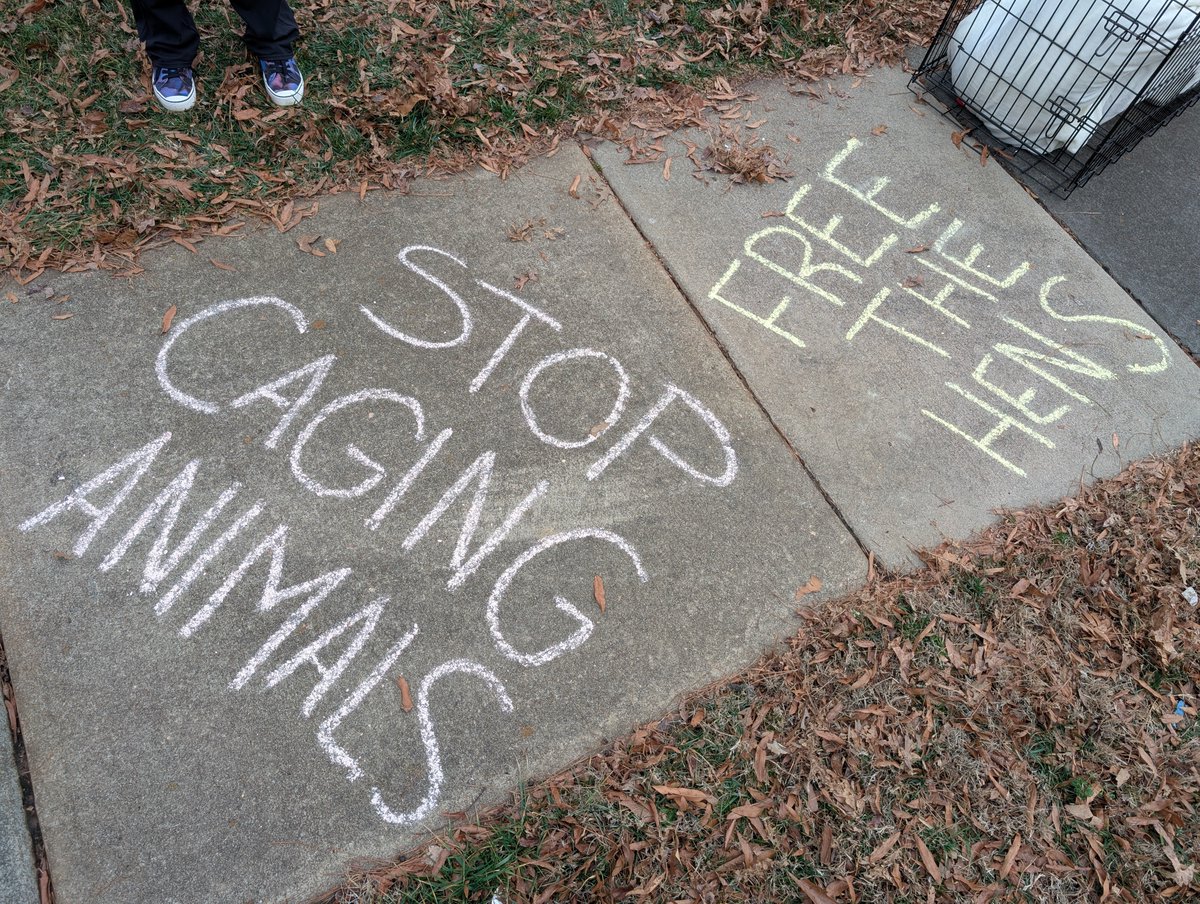 STOP
CAGING
ANIMALS
FREE
THE
HENS